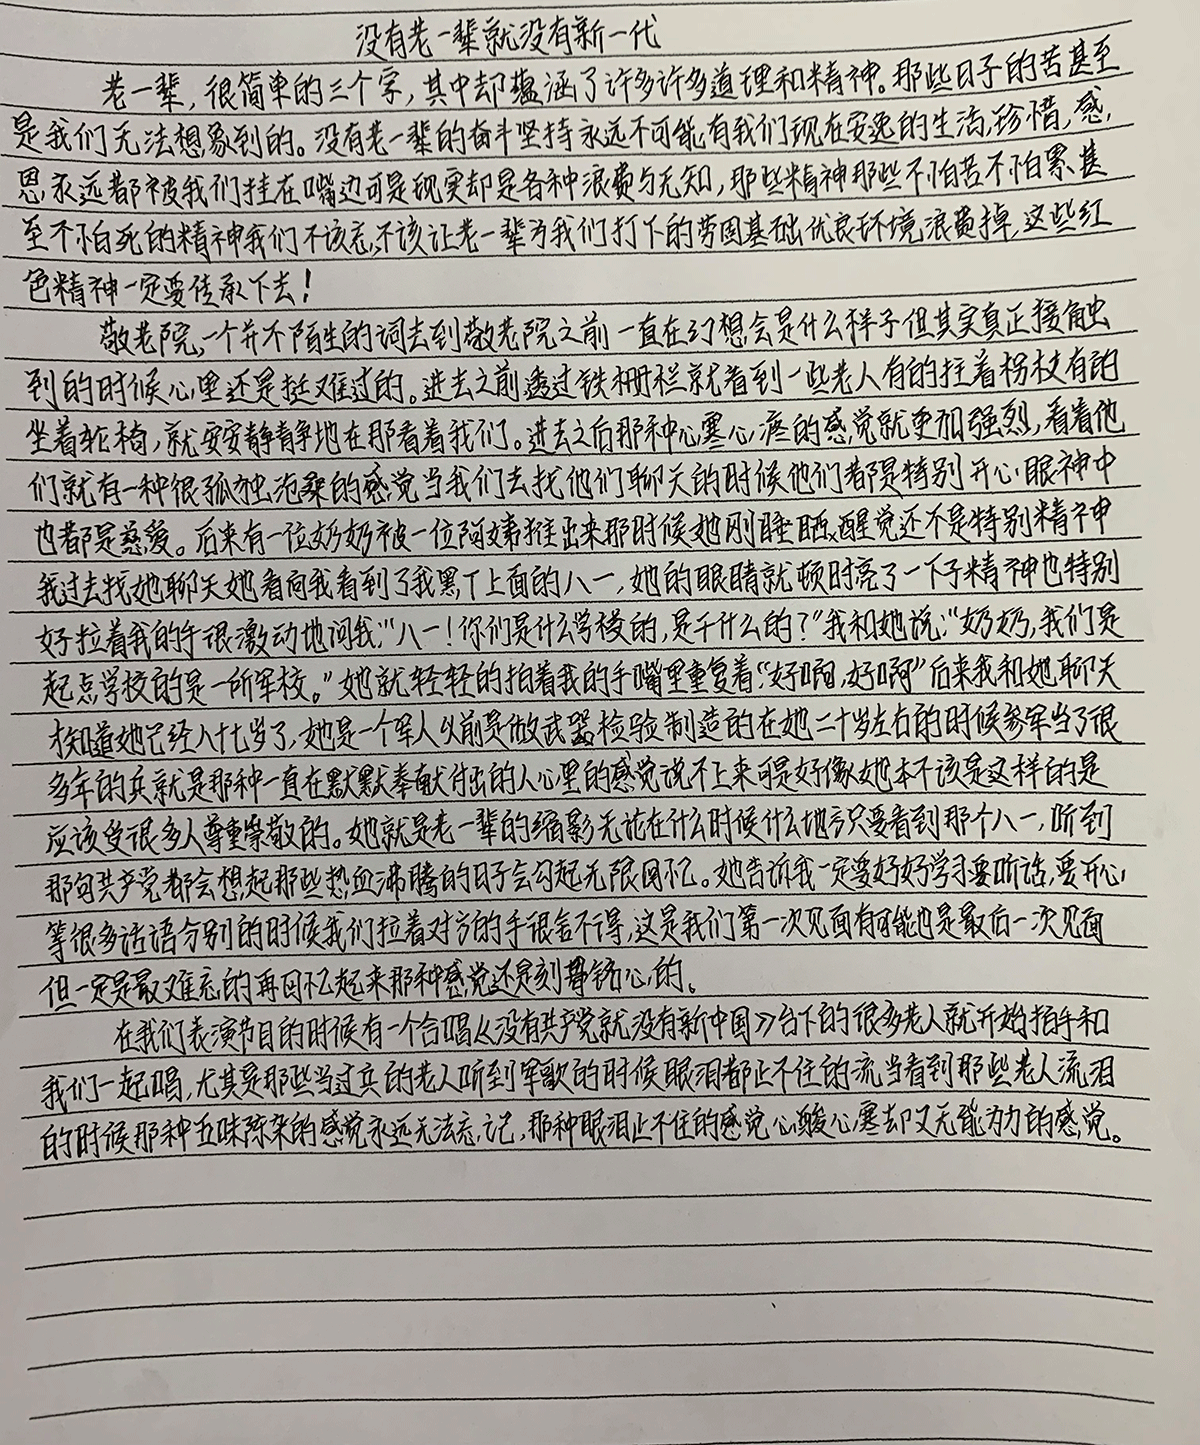 没有老一辈就没有新一代
老一辈，很简单的三个字，其中却蕴涵了许多许多道理和精神。那些日子的苦甚至
是我们无法想象到的。没有老一辈的奋斗坚持永远不可能有我们现在安逸的生活，珍惜，感
恩，永远都被我们挂在嘴边可是现实却是各种浪费与无知，那些精神那些不怕苦不怕累甚
至不怕死的精神我们不该忘，不该让老一辈为我们打下的劳固基础优良环境浪费掉，这些红
色精神一定要传承下去！
敬老院，一个并不陌生的词去到敬老院之前一直在幻想会是什么样子但其实真正接触
到的时候心里还是挺难过的。进去之前透过铁栅栏就看到一些老人有的拄着拐杖有的
坐着轮椅，就安安静静地在那看着我们。进去之后那种心寒心疼的感觉就更加强烈，看着他
们就有一种很孤独沧桑的感觉当我们去找他们聊天的时候他们都是特别开心眼神中
也都是慈爱。后来有一位奶奶被一位阿姨推出来那时候她刚睡醒觉还不是特别精神
我过去找她聊天她看向我看到了我黑T上面的八一，她的眼睛就顿时亮了一下子精神也特别
好拉着我的手很激动地问我：“八一！你们是什么学校的，是干什么的？”我和她说：“奶奶，我们是
起点学校的是一所军校。”她就轻轻的拍着我的手嘴里重复着：“好啊，好啊”后来我和她聊天
才知道她已经八十七岁了，她是一个军人以前是做武器检验制造的在她二十岁左右的时候参军当了很
多年的兵就是那种一直在默默奉献付出的人心里的感觉说不上来可是好像她本不该是这样的是
应该受很多人尊重崇敬的。她就是老一辈的缩影无论在什么时候什么地方只要看到那个八一，听到
那句共产党都会想起那些热血沸腾的日子会勾起无限回忆。她告诉我一定要好好学习要听话，要开心，
等很多话语分别的时候我们拉着对方的手很舍不得，这是我们第一次见面有可能也是最后一次见面
但一定是最难忘的再回忆起来那种感觉还是刻骨铭心的。
在我们表演节目的时候有一个合唱《没有共产党就没有新中国》台下的很多老人就开始拍手和
我们一起唱，尤其是那些当过兵的老人听到军歌的时候眼泪都止不住的流当看到那些老人流泪
的时候那种五味陈杂的感觉永远无法忘记，那种眼泪止不住的感觉心酸心寒却又无能为力的感觉。